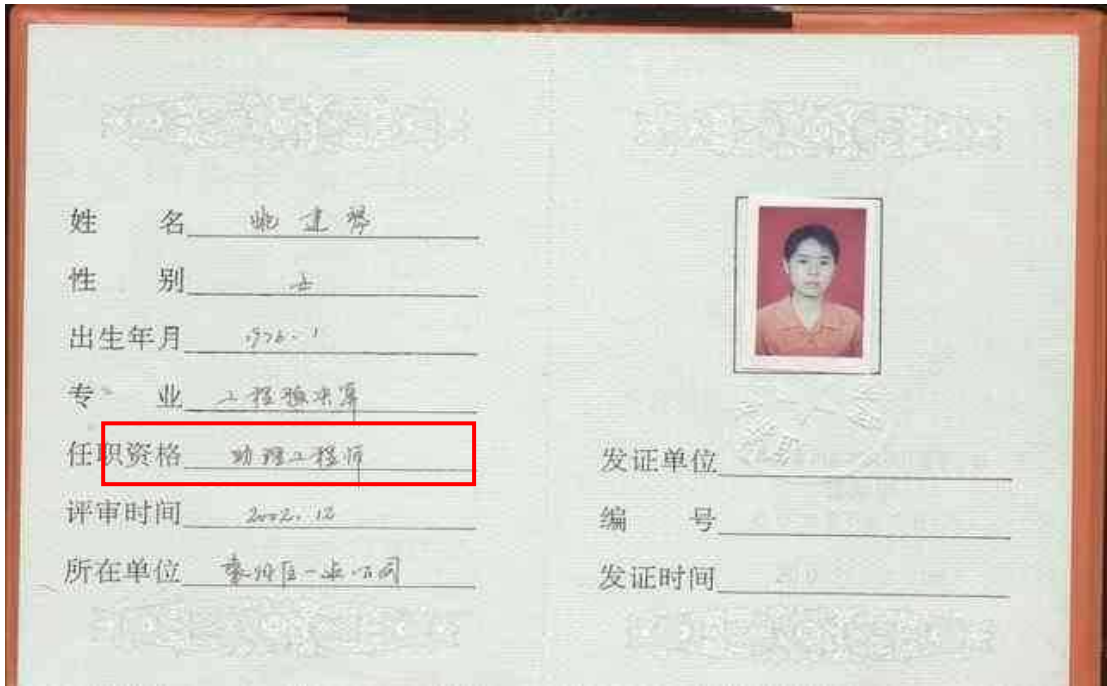 姓 名 姚建琴
性 别 女
出生年月 1976.1
专 业 工程预决算
任职资格 助理工程师
评审时间 2002.12
所在单位 袁州区一建公司
发证单位
编 号
发证时间